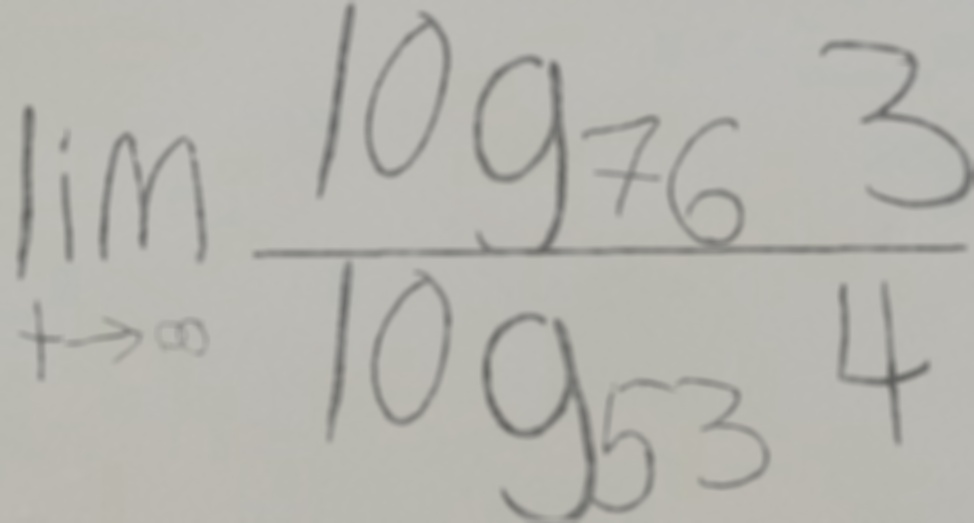 lim log_{76} 3
t→∞ log_{53} 4